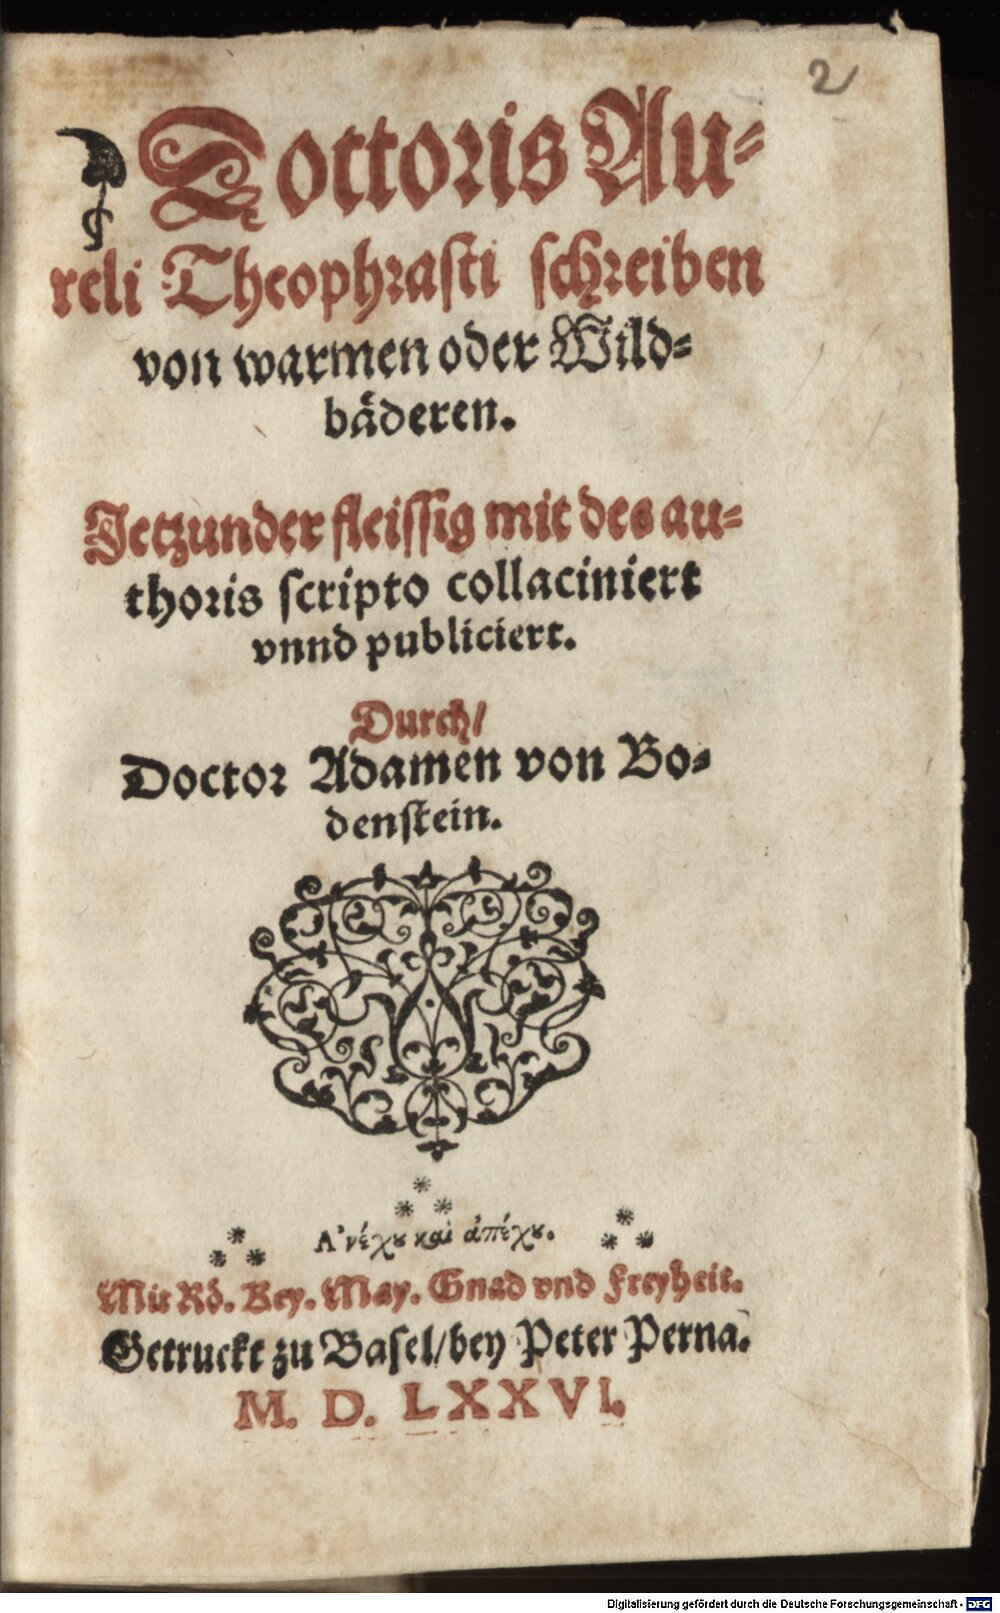 2
Doctoris Au-
reli Theophrasti schreiben
von warmen oder Wild-
bäderen.
Jetzunder fleissig mit des au-
thoris scripto collaciniert
vnnd publiciert.
Durch/
Doctor Adamen von Bo-
denstein.
Ἀνέχου καὶ ἀπέχου.
Mit Rö. Key. May. Gnad vnd Freyheit.
Getruckt zu Basel/bey Peter Perna.
M. D. LXXVI.
Digitalisierung gefördert durch die Deutsche Forschungsgemeinschaft - DFG